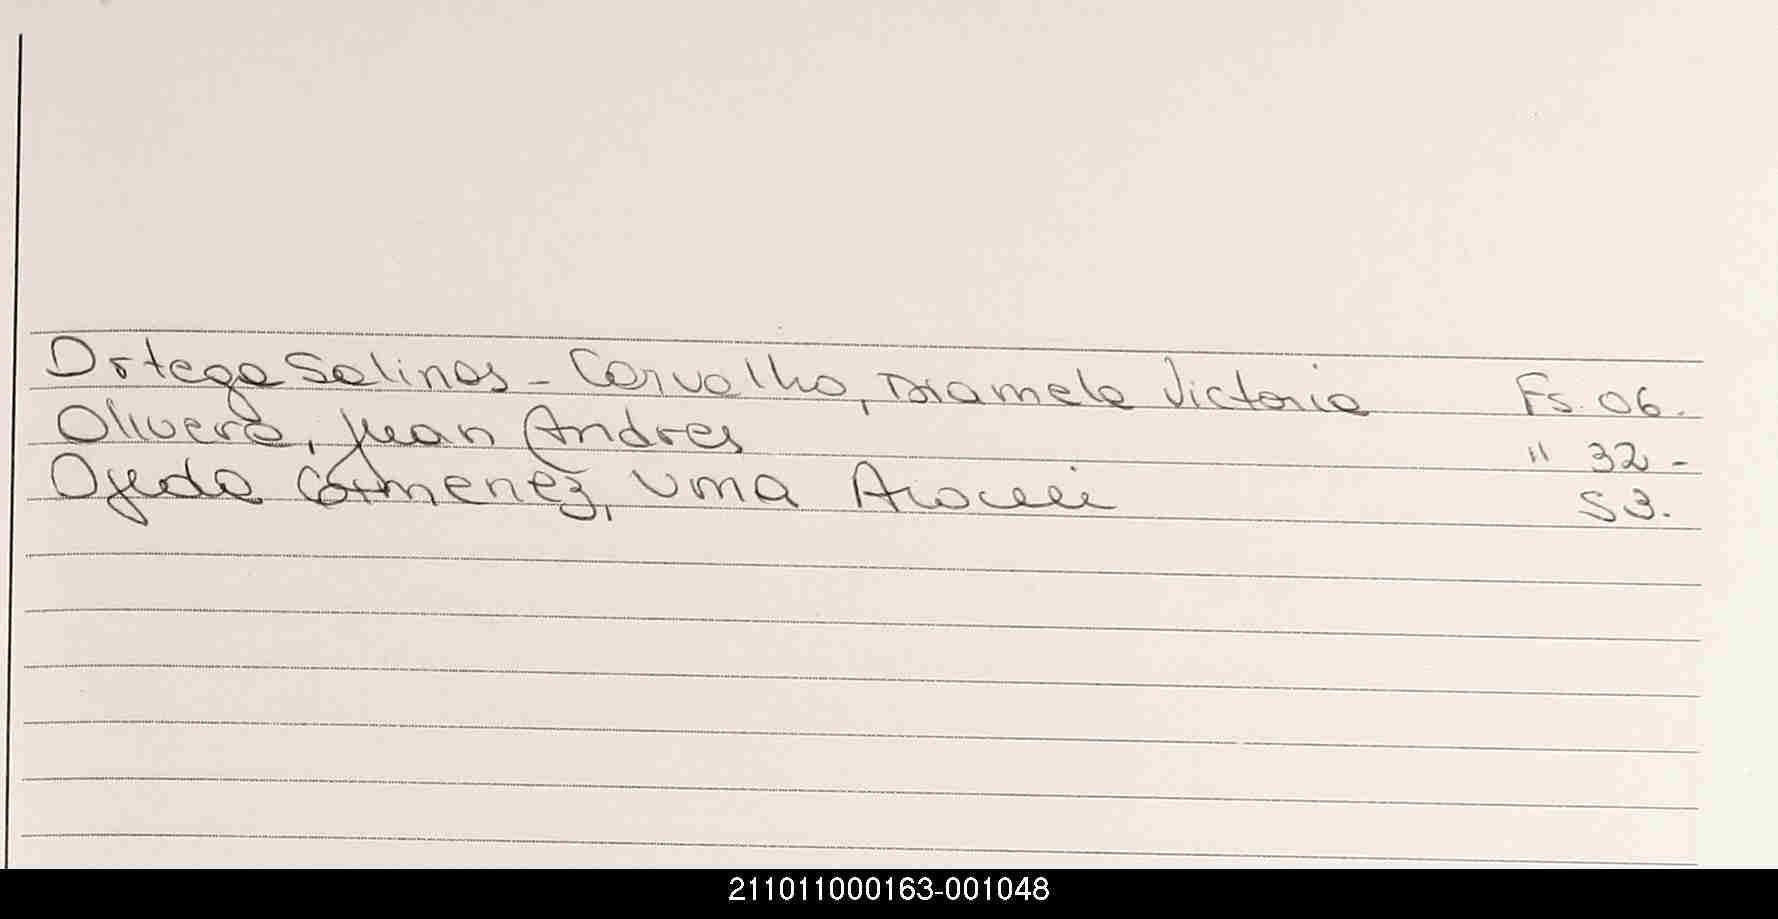 Ortega Salinas - Carvalho, Diamela Victoria Fs. 06.
Olivera, Juan Andres " 32 -
Ojeda Gimenez, Uma Araceli 53.
211011000163-001048